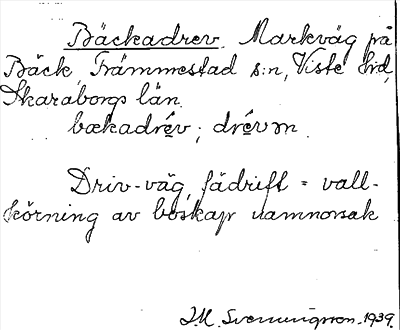 Bäckadrev. Markväg på
Bäck, Främmestad s:n, Viste hd,
Skaraborgs län.
bækadrév ; drévən.
Driv-väg, fädrift = vall-
körning av boskap namnorsak
J.M. Svenningsson. 1939.